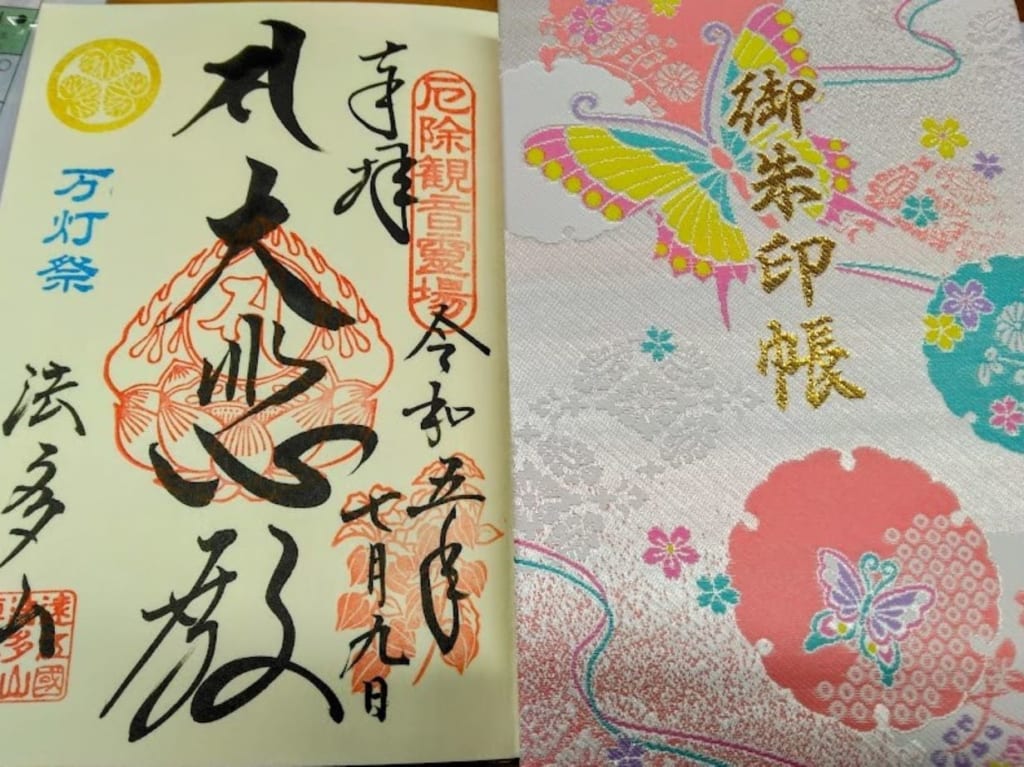 御朱印帳
厄除観音靈場
奉拝
令和五年
七月九日
大悲殿
万灯祭
法多山